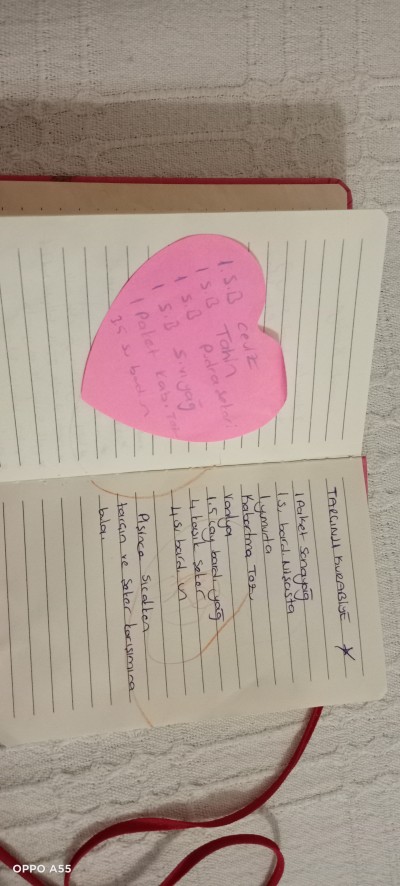 1 S.B ceviz
1 S.B Tahin
1 S.B pudra şekeri
1 S.B sıvıyağ
1 Paket kabartma
su bard un
TARÇINLI KURABİYE
1 Paket Sanayağ
1 s. bard. Nişasta
1 yumurta
Kabartma Tozu
Vanilya
1.5 çay bard. yağ
4 kaşık şeker
4 si bard. un
Pişince sıcakken
tarçın ve şeker karışımına
bula.
OPPO A55